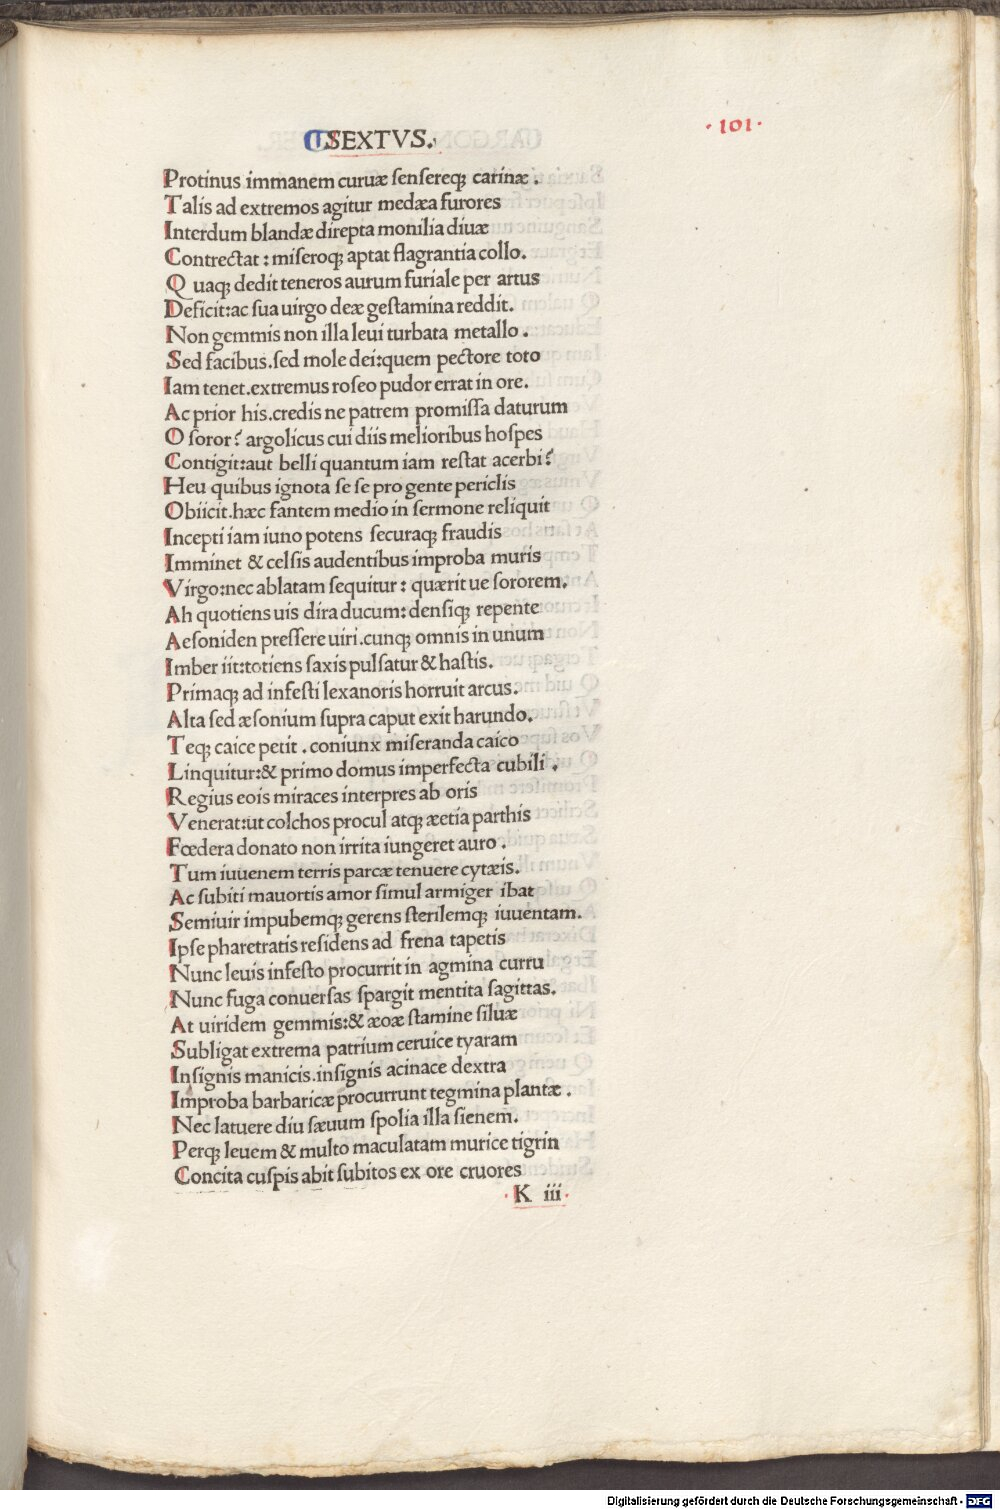 SEXTVS.
·101·
Protinus immanem curuæ ſenſereq; carinæ .
Talis ad extremos agitur medæa furores
Interdum blandæ direpta monilia diuæ
Contrectat : miſeroq; aptat flagrantia collo.
Q uaq; dedit teneros aurum furiale per artus
Deficit:ac ſua uirgo deæ geſtamina reddit.
Non gemmis non illa leui turbata metallo .
Sed facibus.ſed mole dei:quem pectore toto
Iam tenet.extremus roſeo pudor errat in ore.
Ac prior his.credis ne patrem promiſſa daturum
O ſoror? argolicus cui diis melioribus hoſpes
Contigit:aut belli quantum iam reſtat acerbi?
Heu quibus ignota ſe ſe pro gente periclis
Obiicit.hæc fantem medio in ſermone reliquit
Incepti iam iuno potens ſecuraq; fraudis
Imminet & celſis audentibus improba muris
Virgo:nec ablatam ſequitur : quærit ue ſororem.
Ah quotiens uis dira ducum:denſiq; repente
Aeſoniden preſſere uiri.cunq; omnis in unum
Imber iit:totiens ſaxis pulſatur & haſtis.
Primaq; ad infeſti lexanoris horruit arcus.
Alta ſed æſonium ſupra caput exit harundo.
Teq; caice petit . coniunx miſeranda caico
Linquitur:& primo domus imperfecta cubili .
Regius eois miraces interpres ab oris
Venerat:ut colchos procul atq; æetia parthis
Fœdera donato non irrita iungeret auro .
Tum iuuenem terris parcæ tenuere cytæis.
Ac ſubiti mauortis amor ſimul armiger ibat
Semiuir impubemq; gerens ſterilemq; iuuentam.
Ipſe pharetratis reſidens ad frena tapetis
Nunc leuis infeſto procurrit in agmina curru
Nunc fuga conuerſas ſpargit mentita ſagittas.
At uiridem gemmis:& æoæ ſtamine ſiluæ
Subligat extrema patrium ceruice tyaram
Inſignis manicis.inſignis acinace dextra
Improba barbaricæ procurrunt tegmina plantæ .
Nec latuere diu ſæuum ſpolia illa ſienem.
Perq; leuem & multo maculatam murice tigrin
Concita cuſpis abit ſubitos ex ore cruores
K iii
Digitalisierung gefördert durch die Deutsche Forschungsgemeinschaft - DFG